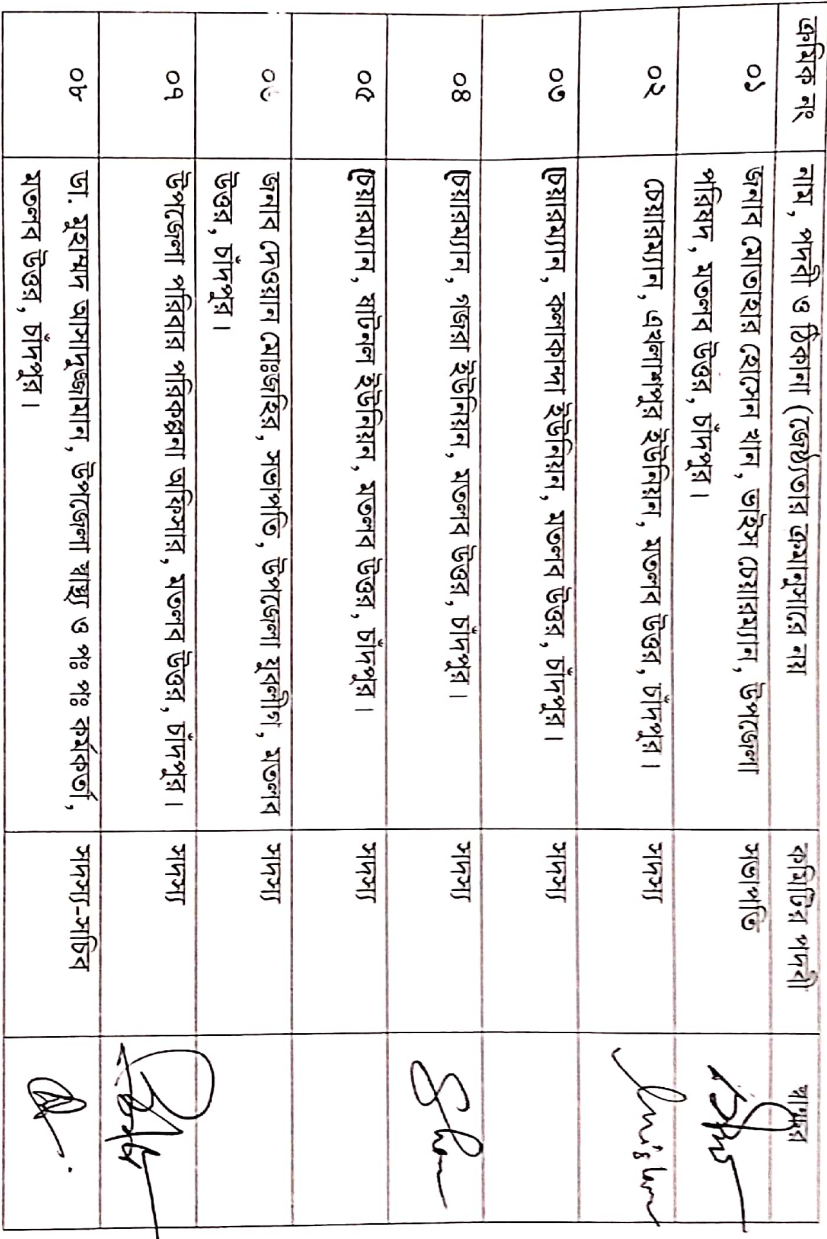 ক্রমিক নং নাম, পদবী ও ঠিকানা (জেষ্ঠ্যতার ক্রমানুসারে নয় কমিটির পদবী স্বাক্ষর
০১ জনাব মোতাহার হোসেন খান, ভাইস চেয়ারম্যান, উপজেলা সভাপতি
পরিষদ, মতলব উত্তর, চাঁদপুর।
০২ চেয়ারম্যান, এখলাশপুর ইউনিয়ন, মতলব উত্তর, চাঁদপুর। সদস্য
০৩ চেয়ারম্যান, কলাকান্দা ইউনিয়ন, মতলব উত্তর, চাঁদপুর। সদস্য
০৪ চেয়ারম্যান, গজরা ইউনিয়ন, মতলব উত্তর, চাঁদপুর। সদস্য
০৫ চেয়ারম্যান, ষাটনল ইউনিয়ন, মতলব উত্তর, চাঁদপুর। সদস্য
০৬ জনাব দেওয়ান মোঃজহির, সভাপতি, উপজেলা যুবলীগ, মতলব সদস্য
উত্তর, চাঁদপুর।
০৭ উপজেলা পরিবার পরিকল্পনা অফিসার, মতলব উত্তর, চাঁদপুর। সদস্য
০৮ ডা. মুহাম্মদ আসাদুজ্জামান, উপজেলা স্বাস্থ্য ও পঃ পঃ কর্মকর্তা, সদস্য-সচিব
মতলব উত্তর, চাঁদপুর।